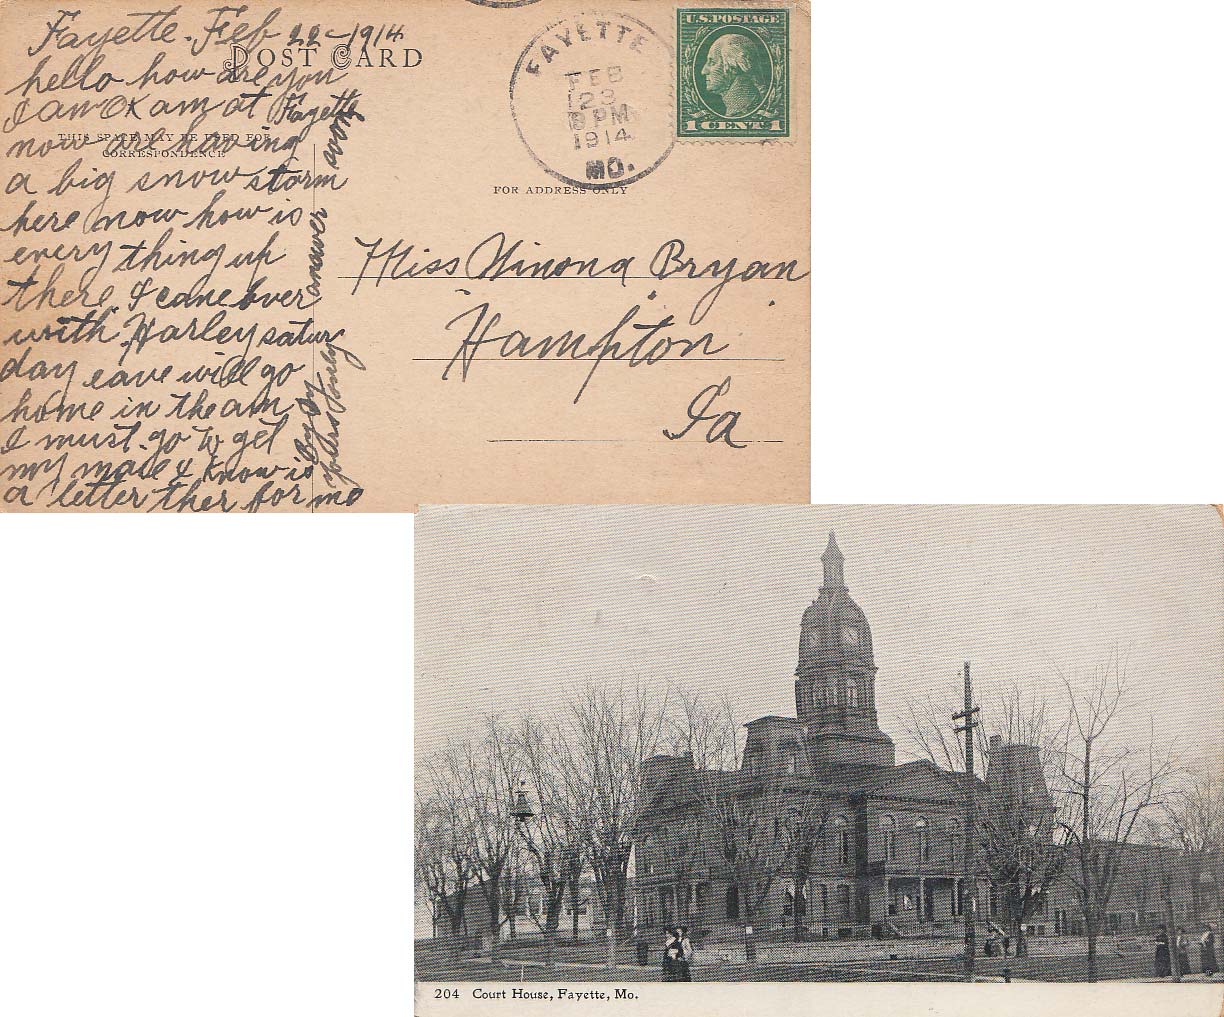 Fayette. Feb 22-1914
POST CARD
hello how are you
I am OK am at Fayette
THIS SPACE MAY BE USED FOR
now are having
CORRESPONDENCE
a big snow storm
here now how is
every thing up
there. I came over
with Harley satur
day eave will go
home in the am
I must go to get
my male & know is
a letter ther for me
by by answer
yours
FAYETTE
FEB
23
8 PM
1914
MO.
U.S. POSTAGE
1 CENT 1
FOR ADDRESS ONLY
Miss Winona Bryan
Hampton
Ia
204 Court House, Fayette, Mo.